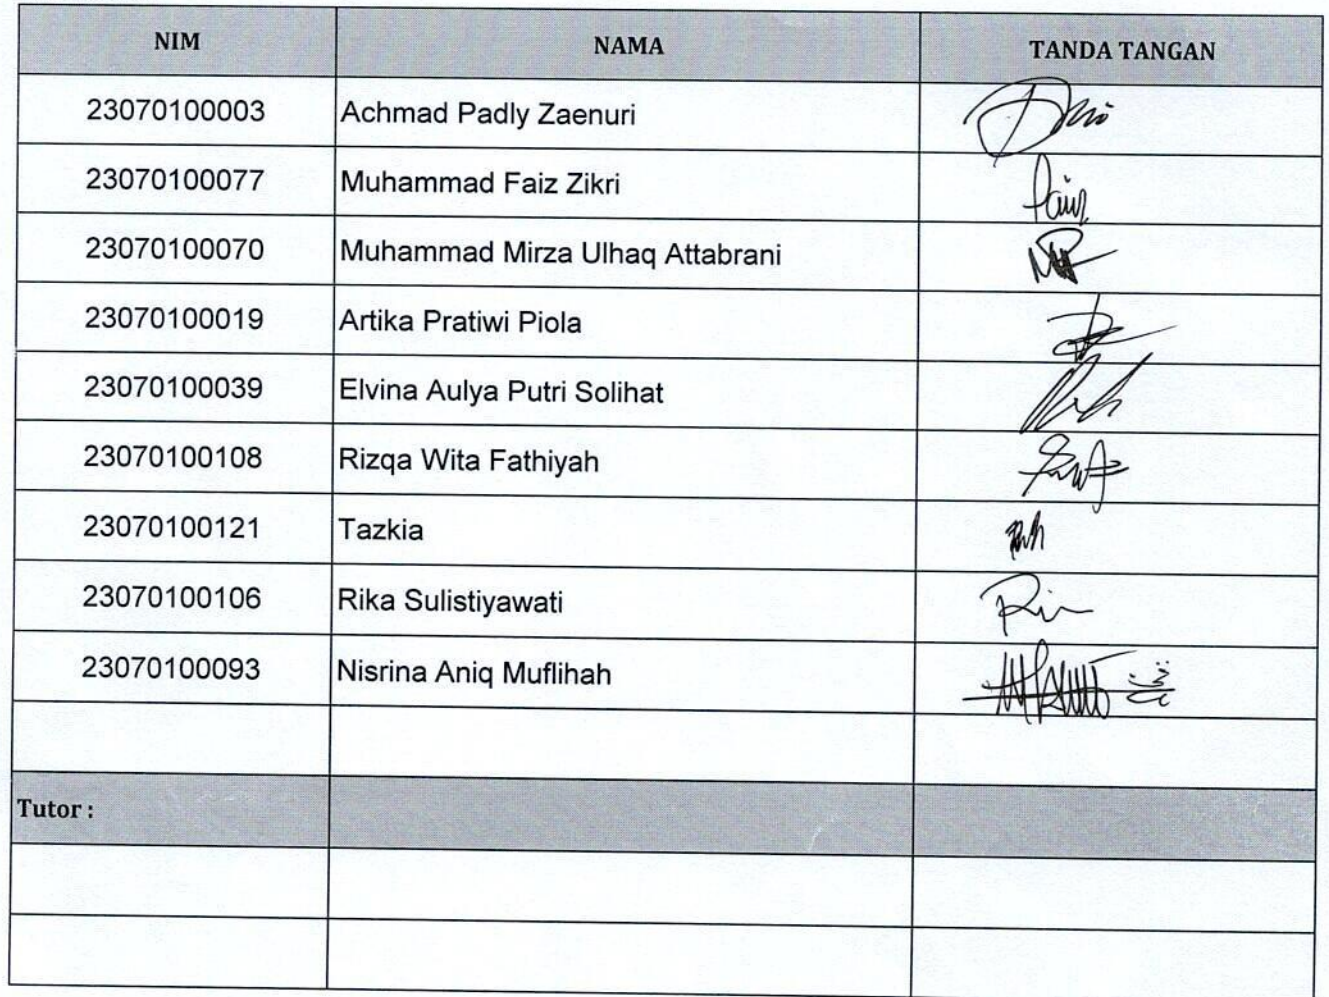 NIM NAMA TANDA TANGAN
23070100003 Achmad Padly Zaenuri
23070100077 Muhammad Faiz Zikri
23070100070 Muhammad Mirza Ulhaq Attabrani
23070100019 Artika Pratiwi Piola
23070100039 Elvina Aulya Putri Solihat
23070100108 Rizqa Wita Fathiyah
23070100121 Tazkia
23070100106 Rika Sulistiyawati
23070100093 Nisrina Aniq Muflihah
Tutor :